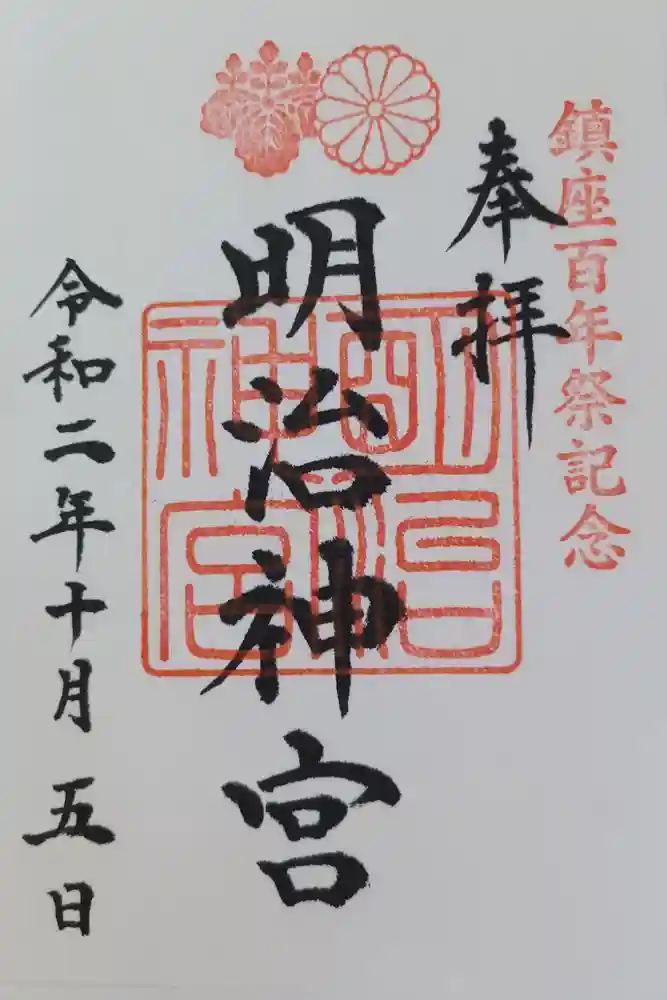 鎮座百年祭記念
奉拝
明治神宮
明治
神宮
令和二年十月五日